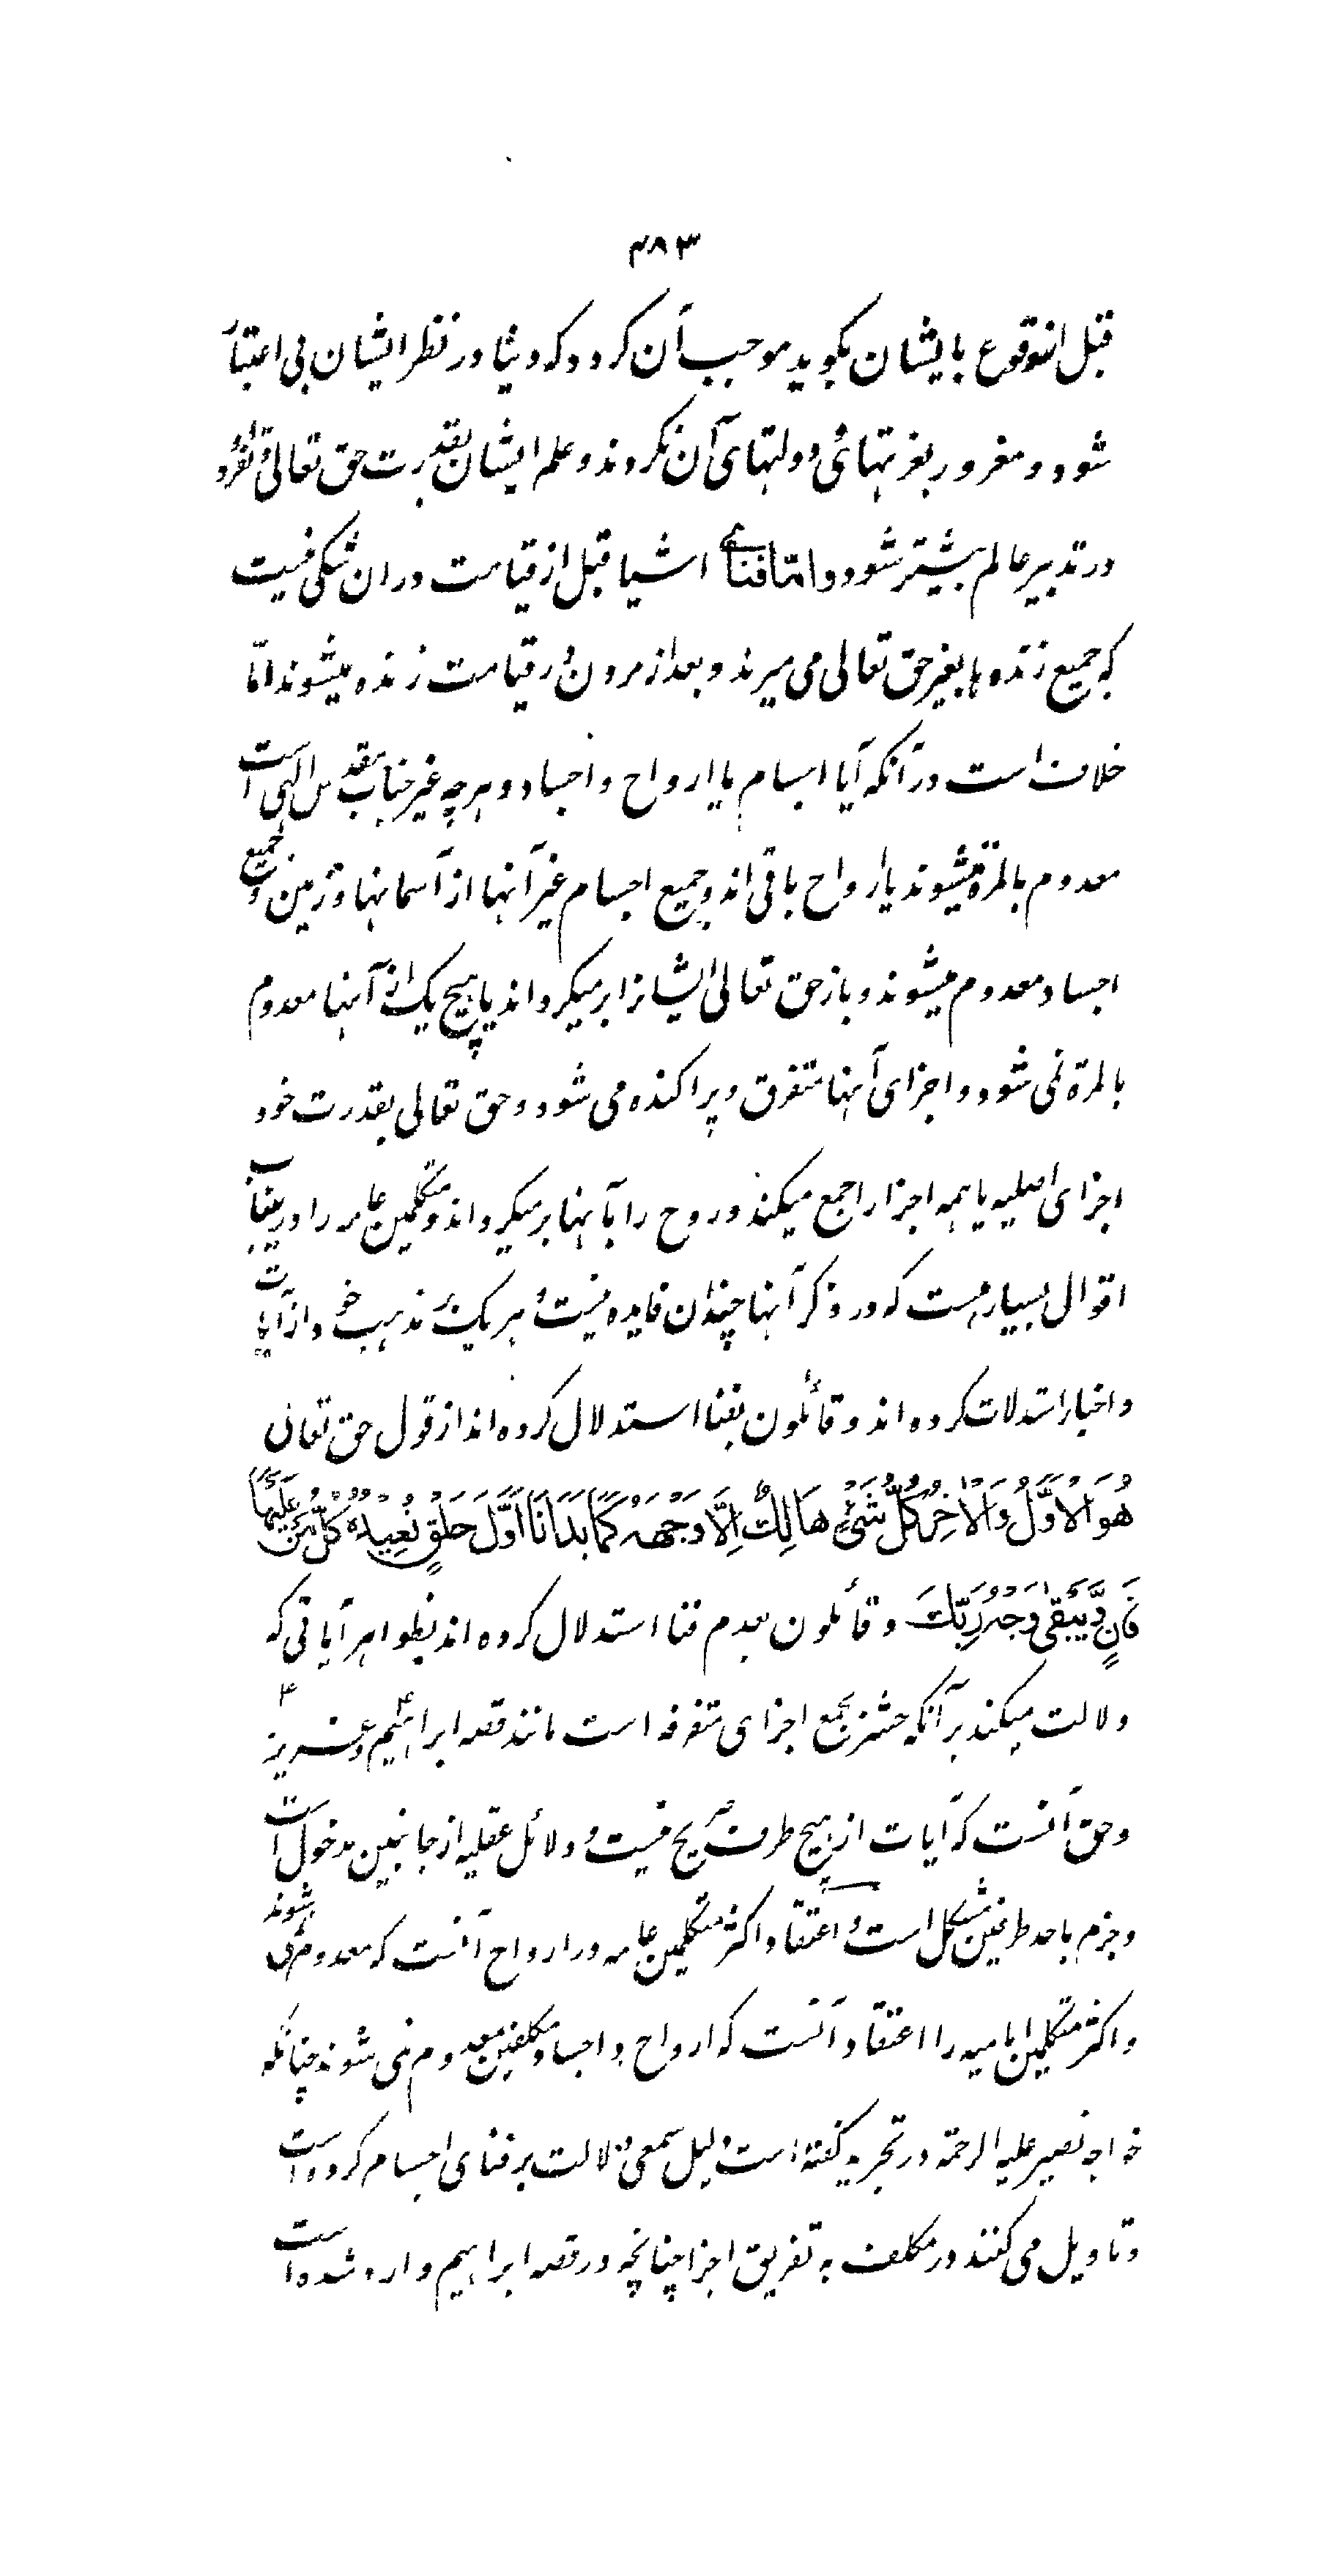 ۴۸۳
قبل از وقوع بایشان بگوید موجب آن گردد که دنیا در نظر ایشان بی اعتبار
شود و مغرور بعزتهای و دولتهای آن نگردند و علم ایشان بقدرت حق تعالی و تفرد او
در تدبیر عالم بیشتر شود و امّا فنای اشیا قبل از قیامت در ان شکی نیست
که جمیع زنده ها بغیر حق تعالی می میرند و بعد از مردن در قیامت زنده میشوند امّا
خلاف است در آنکه آیا اجسام یا ارواح و اجساد و هرچه غیر جناب مقدس الهی است
معدوم بالمرة میشوند یا ارواح باقی اند و جمیع اجسام غیر آنها از آسمانها و زمین و جمیع
اجساد معدوم میشوند و باز حق تعالی ایشانرا بر میگرداند یا هیچ یک از آنها معدوم
بالمرة نمی شود و اجزای آنها متفرق و پراکنده می شود و حق تعالی بقدرت خود
اجزای اصلیه یا همه اجزا را جمع میکند و روح را بآنها بر میگرداند و متکلمین عامه را درینباب
اقوال بسیار هست که در ذکر آنها چندان فایده نیست و هر یک بر مذهب خود از آیات
و اخبار استدلات کرده اند و قائلون بفنا استدلال کرده اند از قول حق تعالی
هُوَ الْاَوَّلُ وَالْاٰخِرُ کُلُّ شَیْءٍ هَالِكٌ اِلَّا وَجْهَهُ کَمَا بَدَاْنَا اَوَّلَ خَلْقٍ نُعِیْدُهُ کُلُّ مَنْ عَلَیْهَا
فَانٍ وَّیَبْقٰی وَجْهُ رَبِّكَ و قائلون بعدم فنا استدلال کرده اند بظواهر آیاتی که
دلالت میکند بر آنکه حشر بجمع اجزای متفرقه است مانند قصه ابراهیم ع و عزیر ع
و حق آنست که آیات از هیچ طرف صریح نیست و دلائل عقلیه از جانبین مدخول است
و جزم باحد طرفین مشکل است و اعتقاد اکثر متکلمین عامه در ارواح آنست که معدوم نمی شوند
و اکثر متکلمین امامیه را اعتقاد آنست که ارواح و اجساد مکلفین معدوم نمی شوند چنانکه
خواجه نصیر علیه الرحمة در تجرید گفته است دلیل سمعی دلالت بر فنای اجسام کرده است
و تاویل می کنند در مکلف به تفریق اجزا چنانچه در قصه ابراهیم وارد شده است